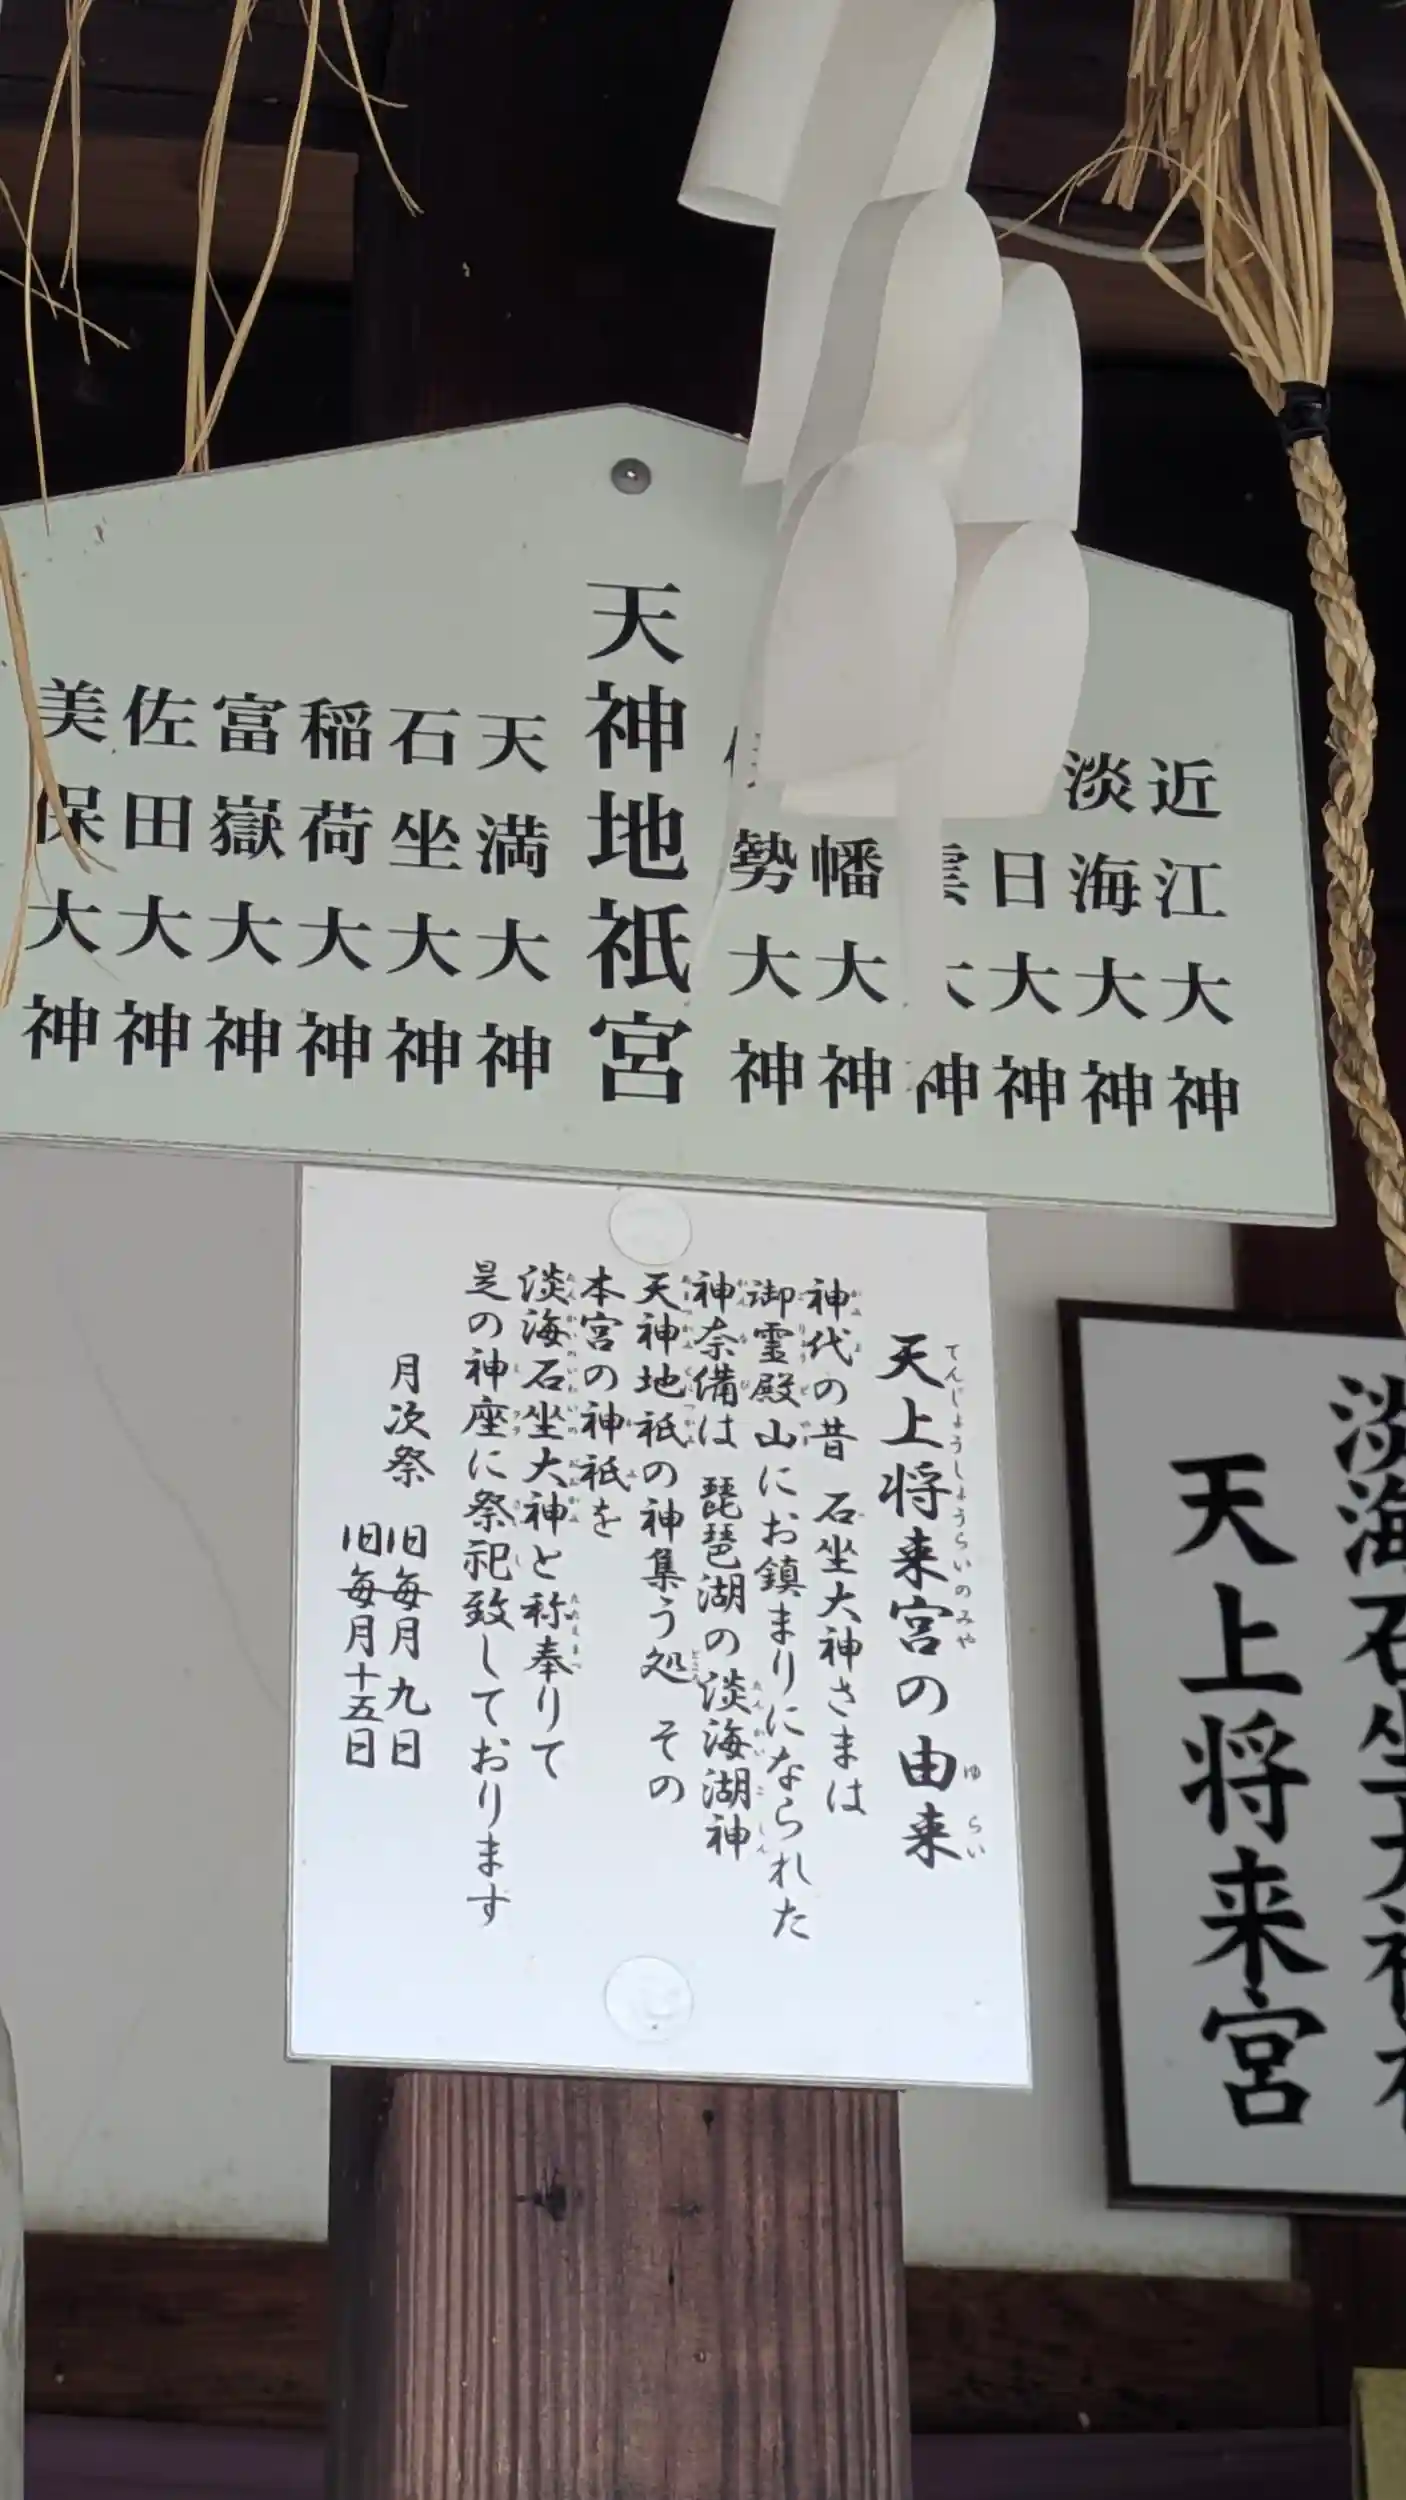 近江大神
淡海大神
日大神
神
幡大神
勢大神
天神地祇宮
天満大神
石坐大神
稲荷大神
富嶽大神
佐田大神
美保大神
天上将来宮の由来
てんじょうしょうらいのみや ゆらい
神代の昔 石坐大神さまは
御霊殿山にお鎮まりになられた
神奈備は 琵琶湖の淡海湖神
たんかいこしん
天神地祇の神集う処 その
本宮の神祇を
淡海石坐大神と称奉りて
是の神座に祭祀致しております
月次祭 旧毎月九日
旧毎月十五日
淡海石坐大神
天上将来宮